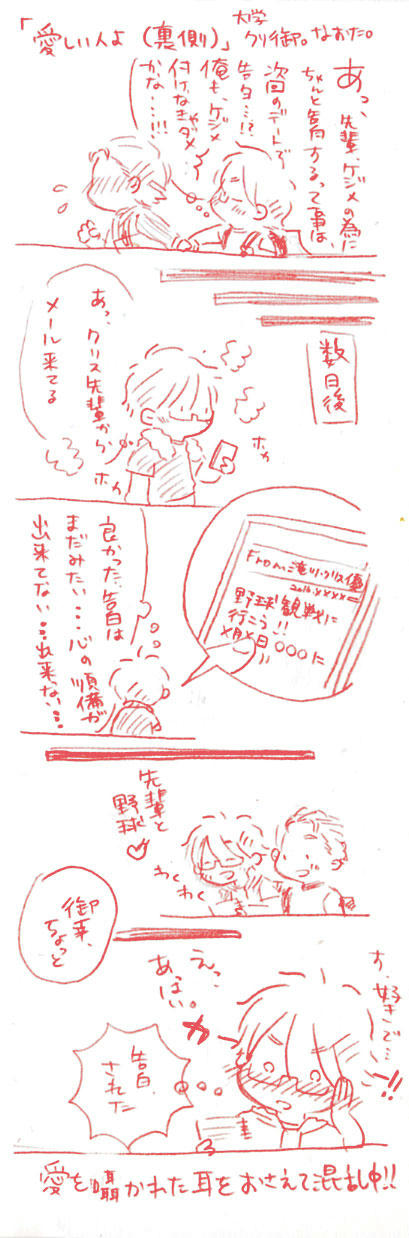 「愛しい人よ（裏側）」
大学
クリ御。なおた。
あっ、
先輩、ケジメの為に
ちゃんと告白するって事は、
次回のデートで
告タヒ…!?
俺も、ケジメ
付けなきゃダメ
かな……!!!
数日後
あっ、クリス先輩から
メール来てる
ホカ
ホカ
From:滝川・クリス・優
2016.××××
野球観戦に
行こう!!
×月×日〇〇〇に
良かった、告白は
まだみたい…心の順備が
出来てない…出来ない…
先輩と
野球♡
わくわく
御幸、
ちょっと
す、好きで…
!!
えっ、
あっはい。
カー
告白、
された
愛を囁かれた耳をおさえて混乱中!!